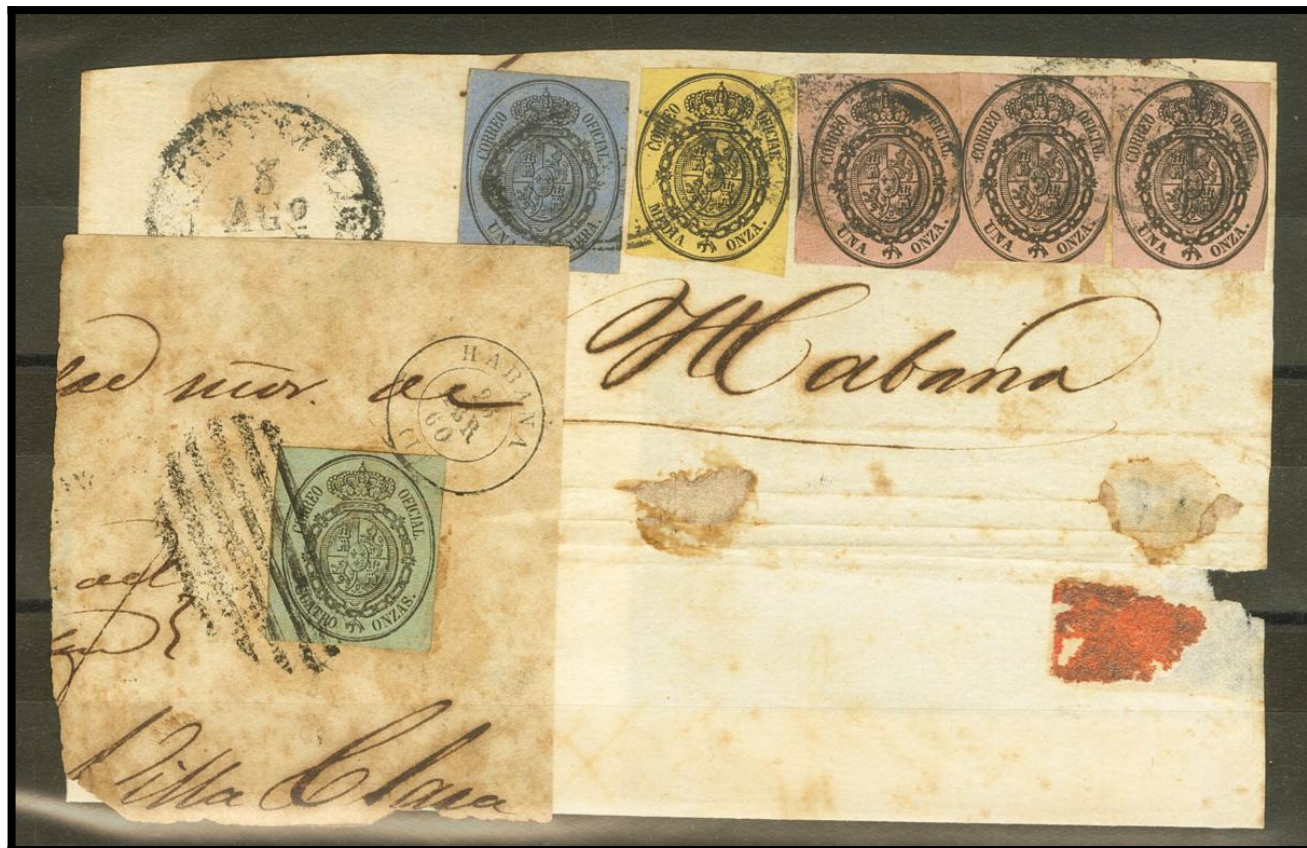 8
AGO
CORREO OFICIAL.
UNA LIBRA.
CORREO OFICIAL.
MEDIA ONZA.
CORREO OFICIAL.
UNA ONZA.
CORREO OFICIAL.
UNA ONZA.
CORREO OFICIAL.
UNA ONZA.
Habana
HABANA
60
de
CORREO OFICIAL.
CUATRO ONZAS.
Villa Clara